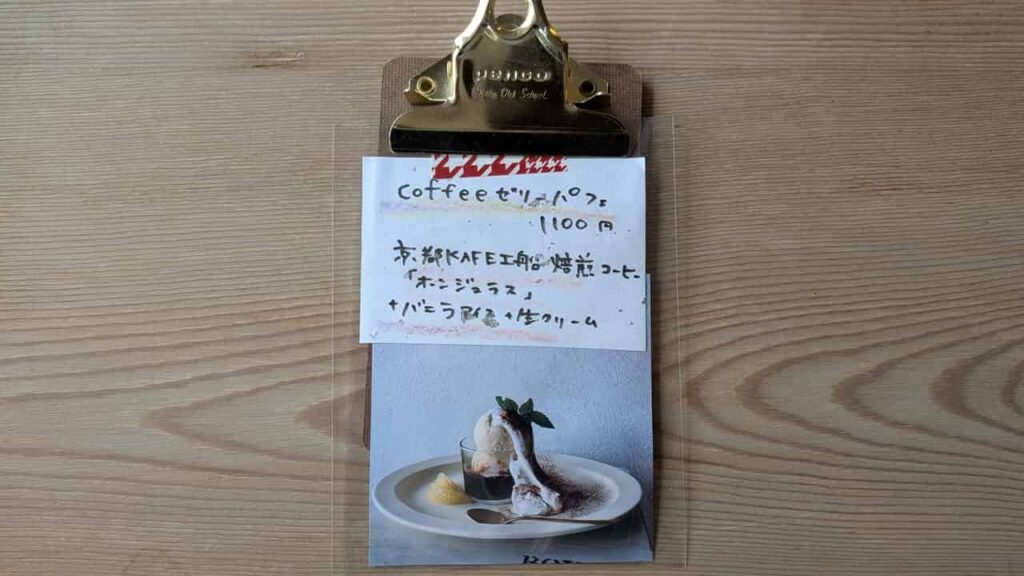 PENCO
Coffee ゼリーパフェ
1100円
京都KAFE工船 焙煎コーヒー
「ホンジュラス」
+バニラアイス+生クリーム